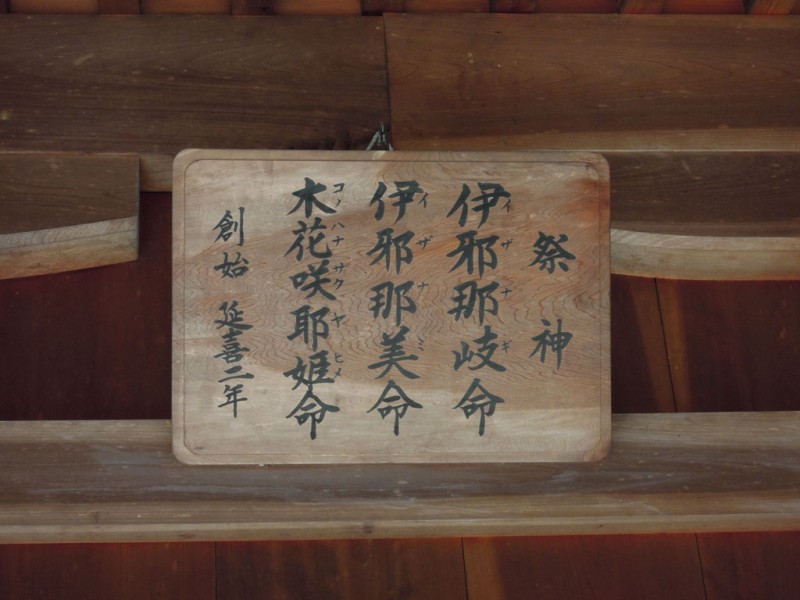 祭神
伊邪那岐命
イザナギ
伊邪那美命
イザナミ
木花咲耶姫命
コノハナサクヤヒメ
創始 延喜二年